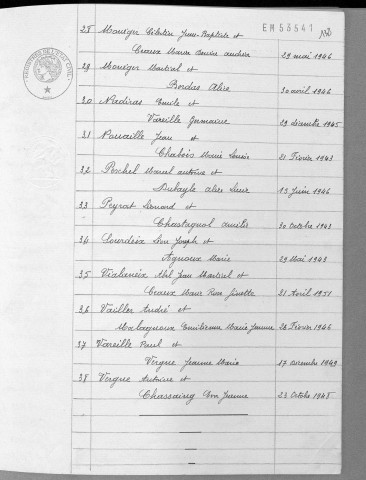 EM 53541
28 Moneger Célestin Jean-Baptiste et
Ceaux Marie Louise 29 mai 1946
29 Moneger Martial et
Bordas Alice 30 avril 1946
30 Nadiras Emile et
Vareille Germaine 29 décembre 1945
31 Nouaille Jean et
Chabois Marie Louise 21 Février 1943
32 Poschel Marcel antoine et
Dubayle alice Lucie 15 Juin 1946
33 Peyrat Léonard et
Chastagnol amélie 30 octobre 1943
34 Lourdeix Léon Joseph et
Agnoux Marie 29 Mai 1943
35 Vialaneix Abel Jean Martial et
Ceaux Marie Rose Ginette 21 Avril 1951
36 Vailler André et
Malagnoux Emilienne Marie Jeanne 26 Février 1946
37 Vareille Paul et
Vergne Jeanne Marie 17 novembre 1949
38 Vergne Antoine et
Chassaing Jeanne 23 Octobre 1948